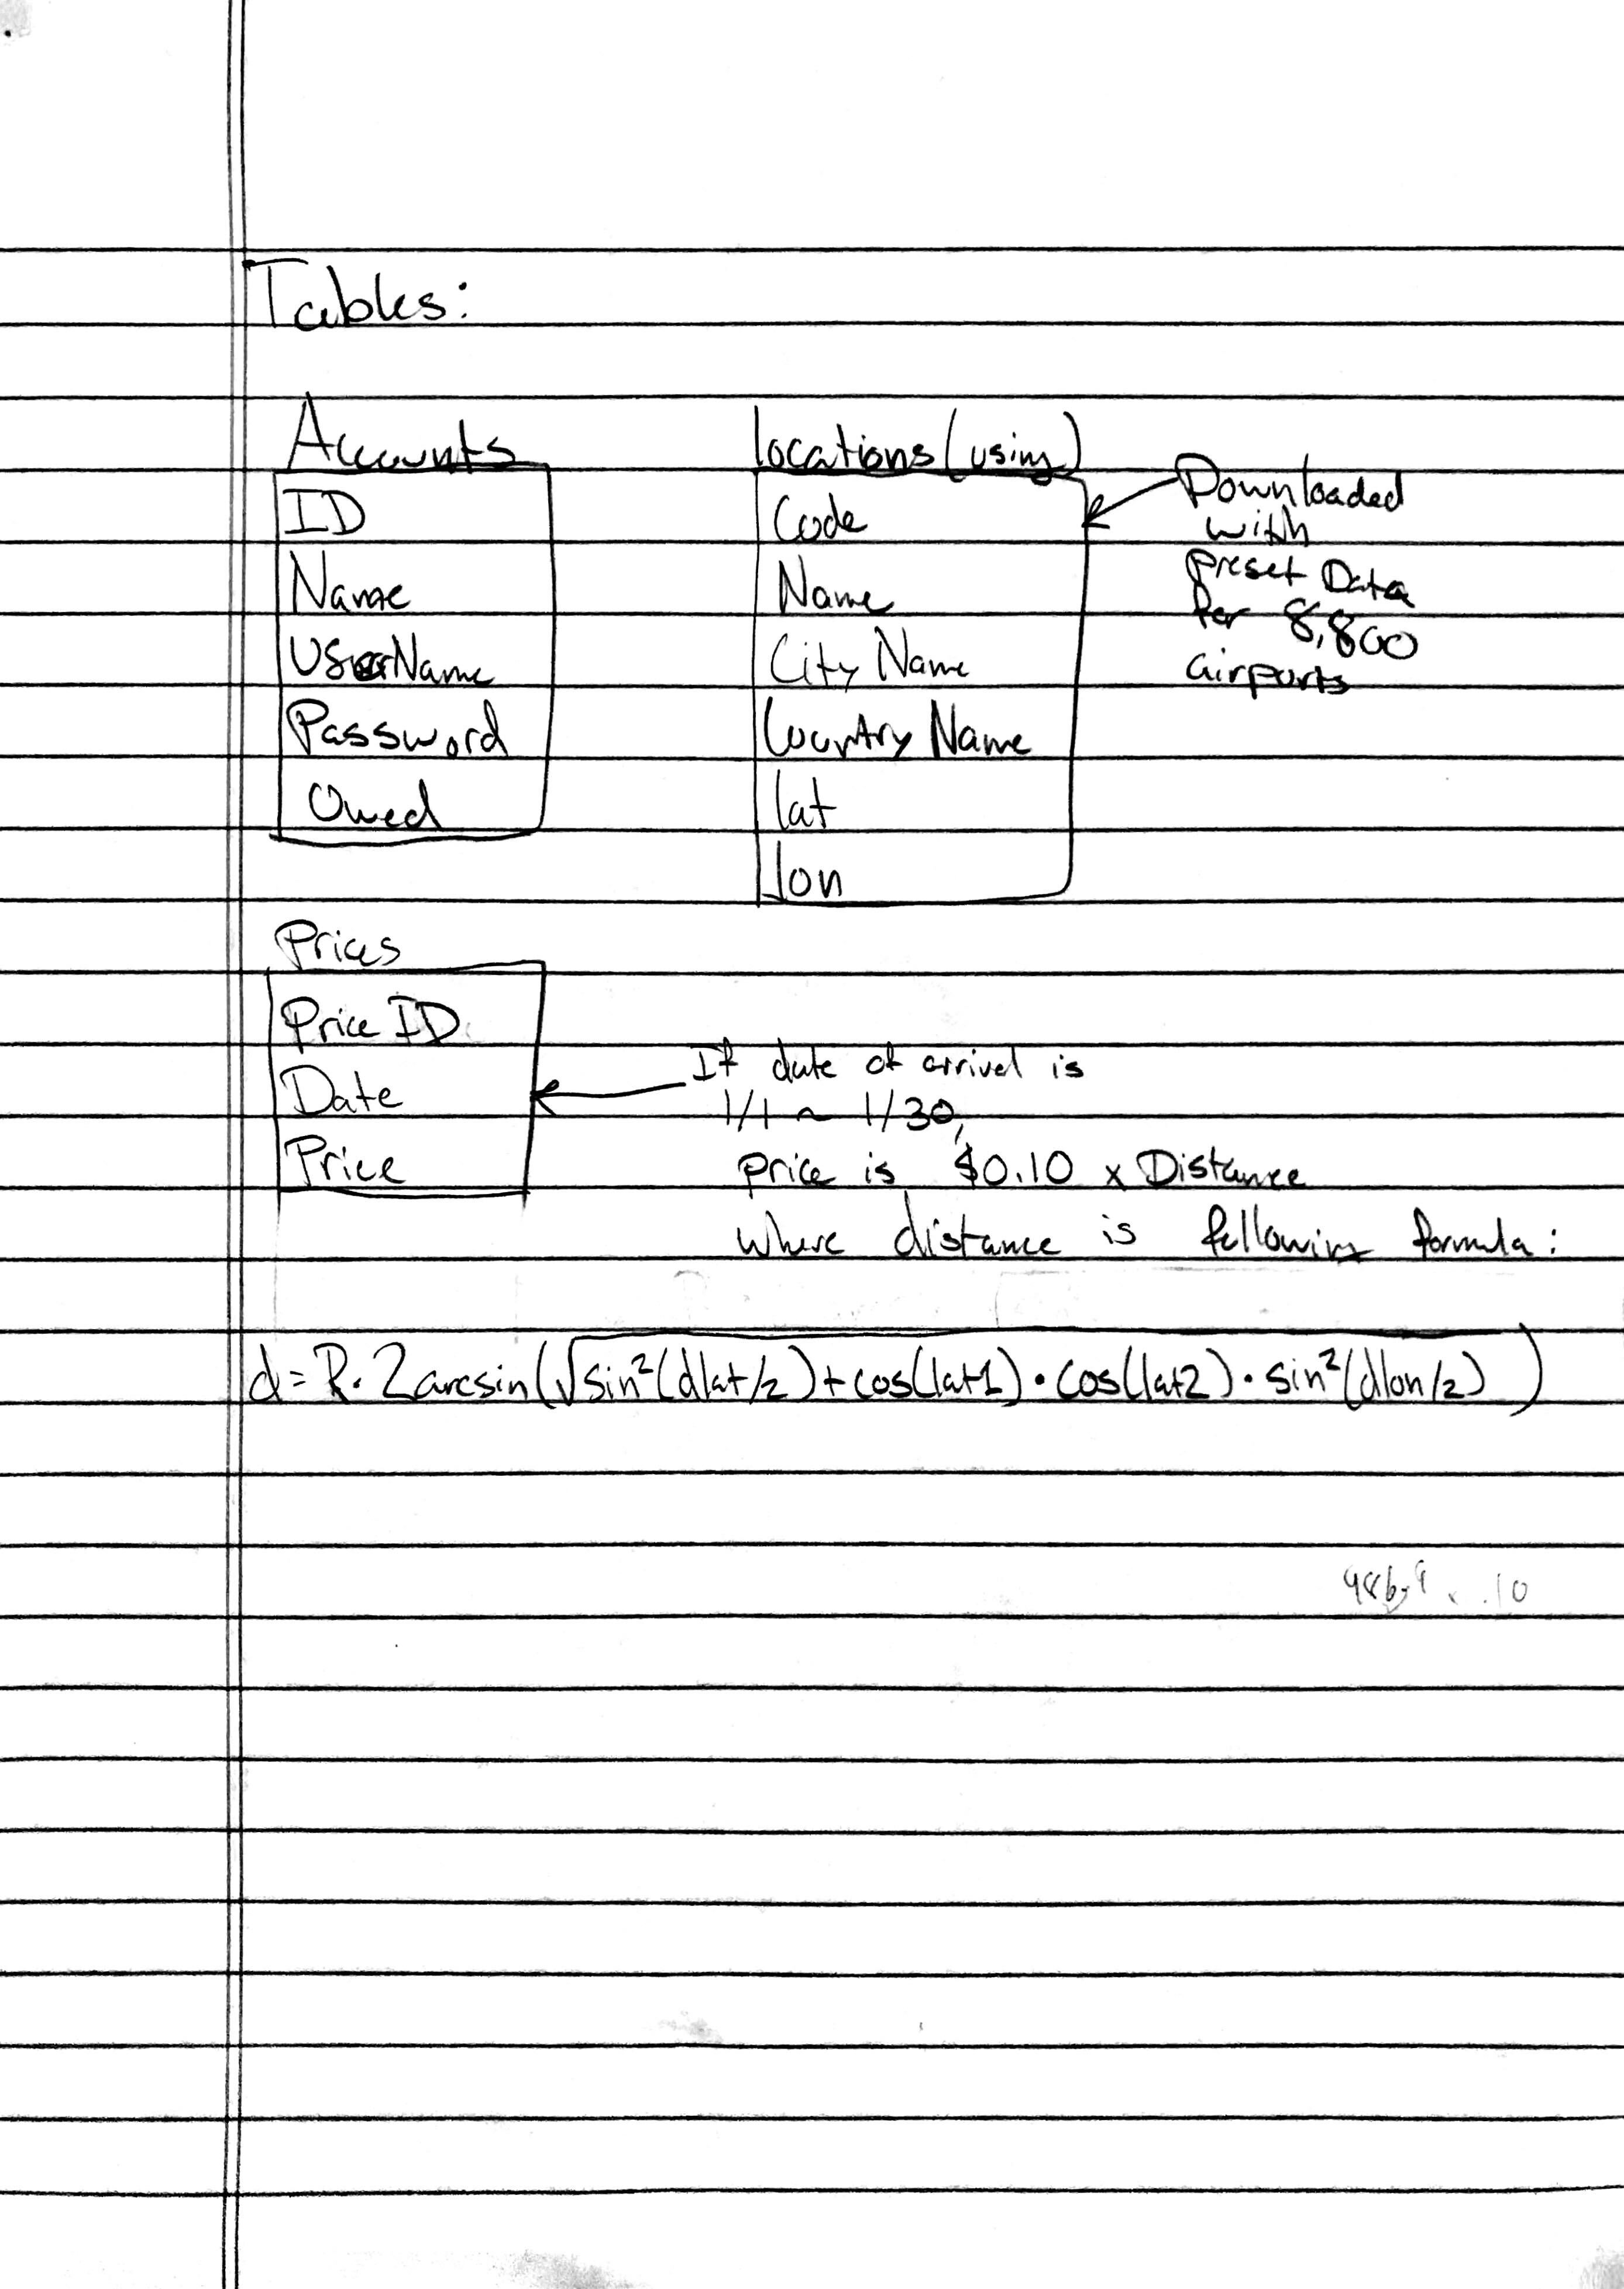 Tables:
Accounts
ID
Name
UserName
Password
Owed
locations (using)
Code
Name
City Name
Country Name
lat
lon
Downloaded
with
preset Data
for 8,800
airports
Prices
Price ID
Date
Price
If date of arrival is
1/1 ~ 1/30,
price is $0.10 x Distance
where distance is following formula:
d = R · 2 arcsin(√sin²(dlat/2) + cos(lat1) · cos(lat2) · sin²(dlon/2))
.10